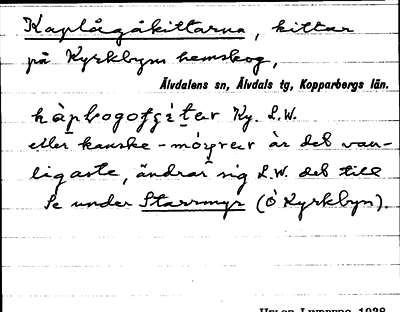 Kaplågåkittarna, kittar
på Kyrkbyns hemskog,
Älvdalens sn, Älvdals tg, Kopparbergs län.
Ky. L.W.
eller kanske -möyrer är det van-
ligaste, ändrar sig L.W. det till
Se under Starrmyr (Ö Kyrkbyn).